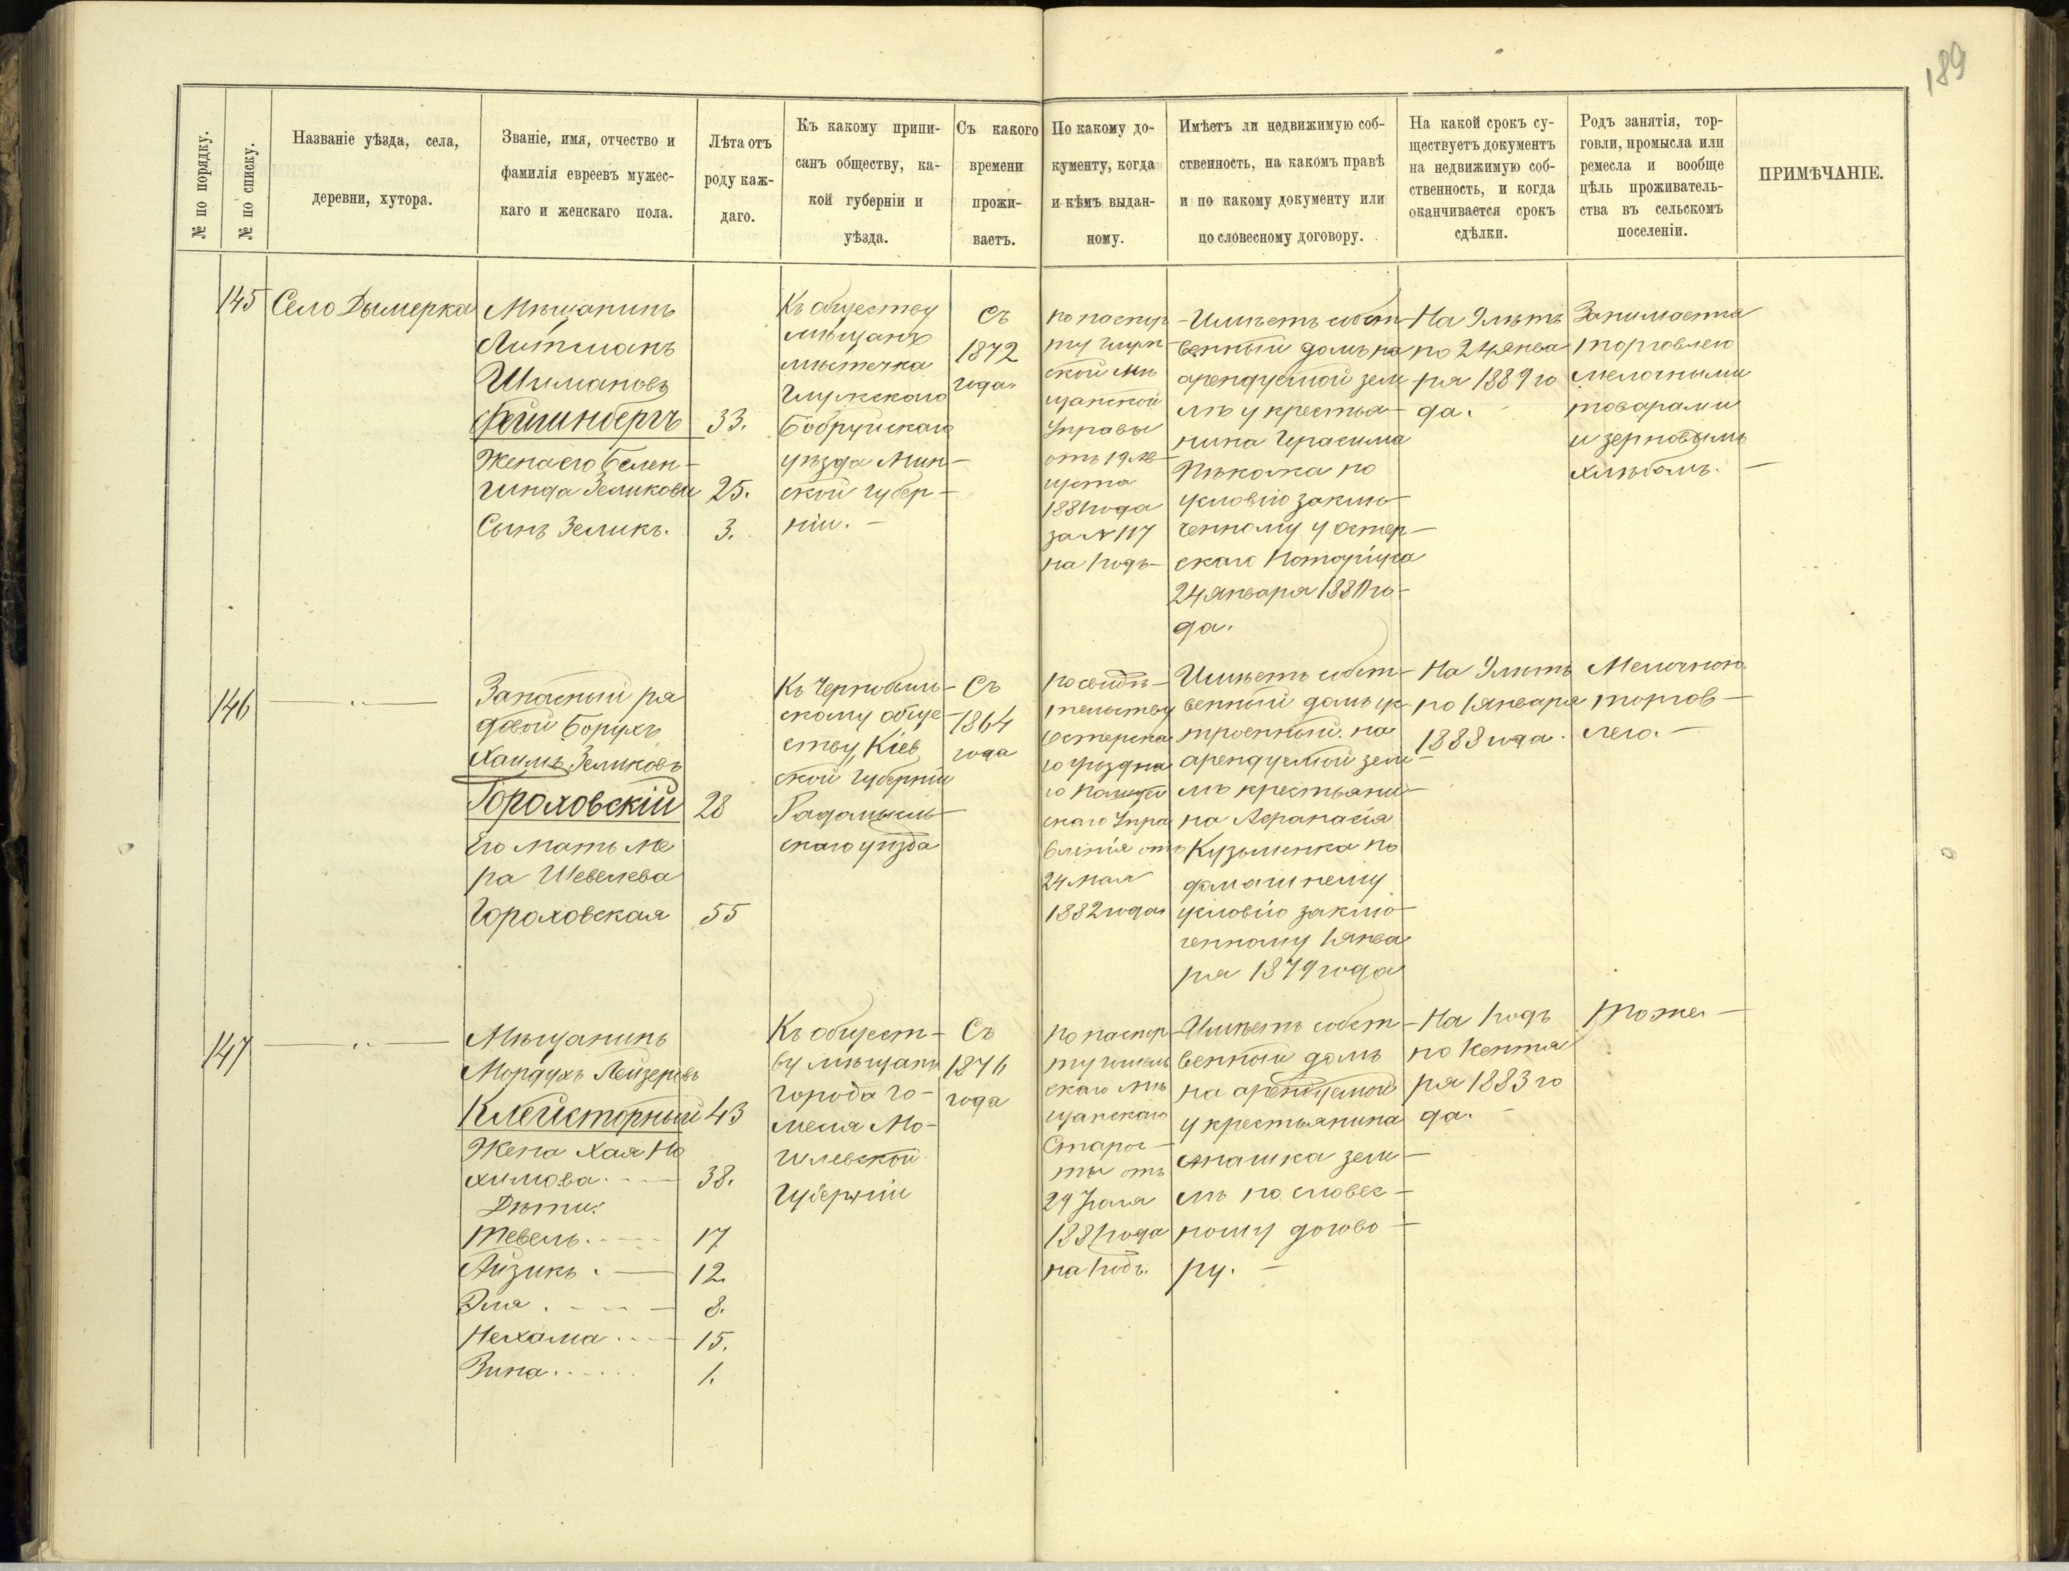 189
№ по порядку.
№ по списку.
Названіе уѣзда, села,
деревни, хутора.
Званіе, имя, отчество и
фамилія евреевъ мужес-
каго и женскаго пола.
Лѣта отъ
роду каж-
даго.
Къ какому припи-
санъ обществу, ка-
кой губерніи и
уѣзда.
Съ какого
времени
прожи-
ваетъ.
По какому до-
кументу, когда
и кѣмъ выдан-
ному.
Имѣетъ ли недвижимую соб-
ственность, на какомъ правѣ
и по какому документу или
по словесному договору.
На какой срокъ су-
ществуетъ документъ
на недвижимую соб-
ственность, и когда
оканчивается срокъ
сдѣлки.
Родъ занятія, тор-
говли, промысла или
ремесла и вообще
цѣль проживатель-
ства въ сельскомъ
поселеніи.
ПРИМѢЧАНІЕ.
145
Село Дымерка
Мѣщанинъ
Литманъ
Шимановъ
Фейгинбергъ 33.
Жена его Белен-
гинда Зеликова 25.
Сынъ Зеликъ. 3.
Къ обществу
мѣщанъ
мѣстечка
Глужскаго
Бобруйскаго
уѣзда Мин-
ской губер-
ніи. —
Съ
1872
года
по паспор
ту глуж-
ской мѣ
щанской
Управы
отъ 19 Ав-
густа
1881 года
за № 117
на 1 годъ
Имѣетъ собст-
венный домъ на
арендуемой зем
лѣ у крестья-
нина Герасима
по
условію заклю-
ченному у остер-
скаго Нотаріуса
24 января 1880 го-
да.
На 9 лѣтъ
по 24 янва
ря 1889 го
да. -
Занимается
торговлею
мелочными
товарами
и зерновымъ
хлѣбомъ. —
146
— " —
Запасный ря
довой Борухъ
Хаимъ Зеликовъ
Гороховскій 28
Его мать Ме
ра Шевелева
Гороховская 55
Къ Чернобыль-
скому обще-
ству, Кіев
ской губерніи
Радомысль-
скаго уѣзда
Съ
1864
года
по свидѣ-
тельству
Остерска
го уѣздна
го Полицей
скаго Упра
вленія отъ
24 мая
1882 года
Имѣетъ собст-
венный домъ ус-
троенный на
арендуемой зем-
лѣ крестьяни-
на Афанасія
Кузьменка по
домашнему
условію заклю-
ченному 1 янва
ря 1879 года
На 9 лѣтъ
по 1 января
1888 года.
Мелочною
торгов-
лею. —
147
— " —
Мѣщанинъ
Мордухъ Лейзеровъ
Клейсторный 43
Жена Хая Но
химова. — 38.
Дѣти:
Тевель. — 17
Айзикъ. — 12.
Эля. — 8.
Нехама — 15.
Зина. 1.
Къ общест-
ву мѣщанъ
города Го-
меля Мо-
гилевской
Губерніи
Съ
1876
года
по паспор-
ту гомель
скаго мѣ
щанскаго
Старос-
ты отъ
29 Іюля
1881 года
на 1 годъ.
Имѣетъ собст-
венный домъ
на арендуемой
у крестьянина
зем-
лѣ по словес-
ному догово-
ру. —
На 1 годъ
по 1 сентя
ря 1883 го
да. -
тоже. —